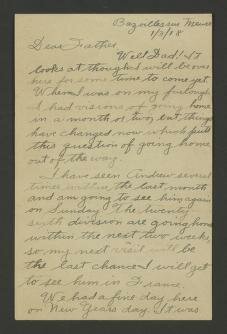 Bazoilles sur Meuse
1/3/18
Dear Father
Well Dad! It
looks as though I will be over
here for some time to come yet.
When I was on my furlough
I had visions of going home
in a month or two, but things
have changed now which puts
this question of going home
out of the way.
I have seen Andrew several
times within the last month
and am going to see him again
on Sunday. The twenty
sixth division are going home
within the next two weeks,
so my next visit will be
the last chance I will get
to see him in France.
We had a fine day here
on New Years day. It was